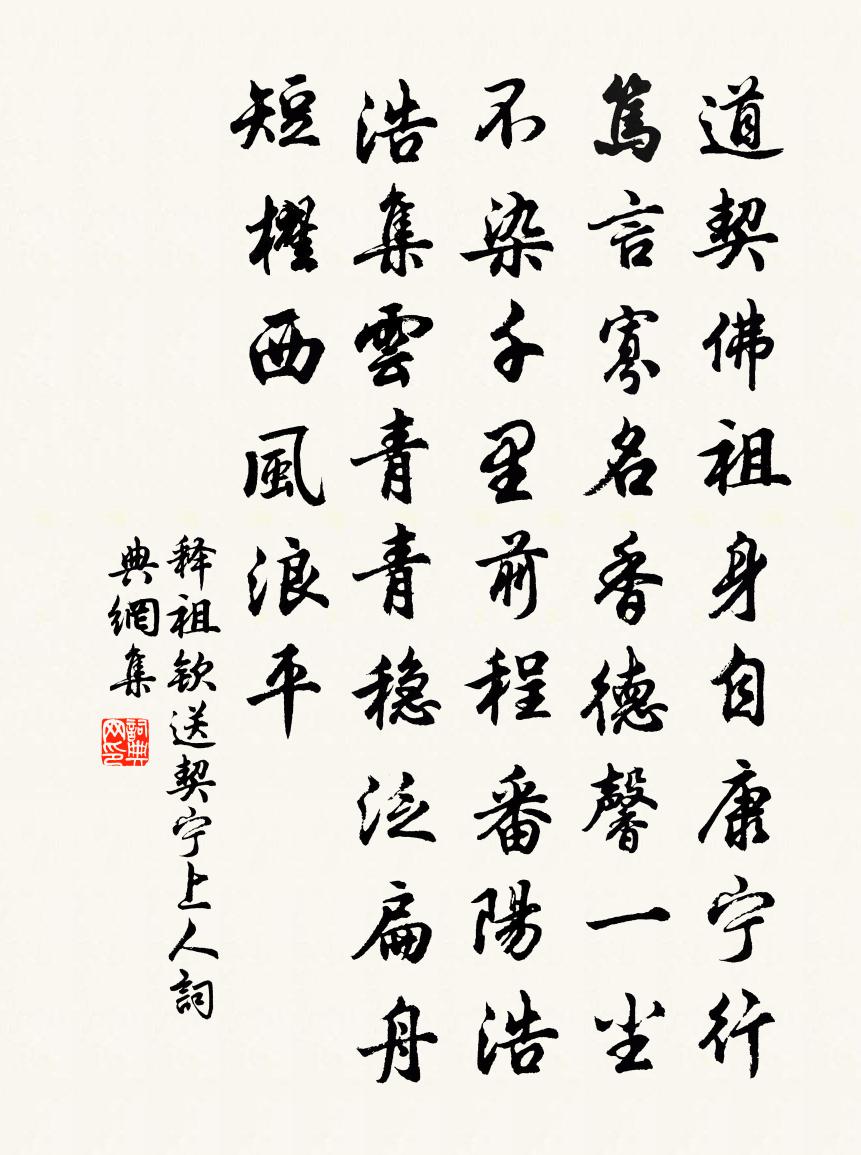 道契佛祖身自康宁行
篤言寡名香德馨一尘
不染千里前程番陽浩
浩集雲青青稳泛扁舟
短櫂西風浪平
释祖钦送契宁上人詞
典網集
詞典网印